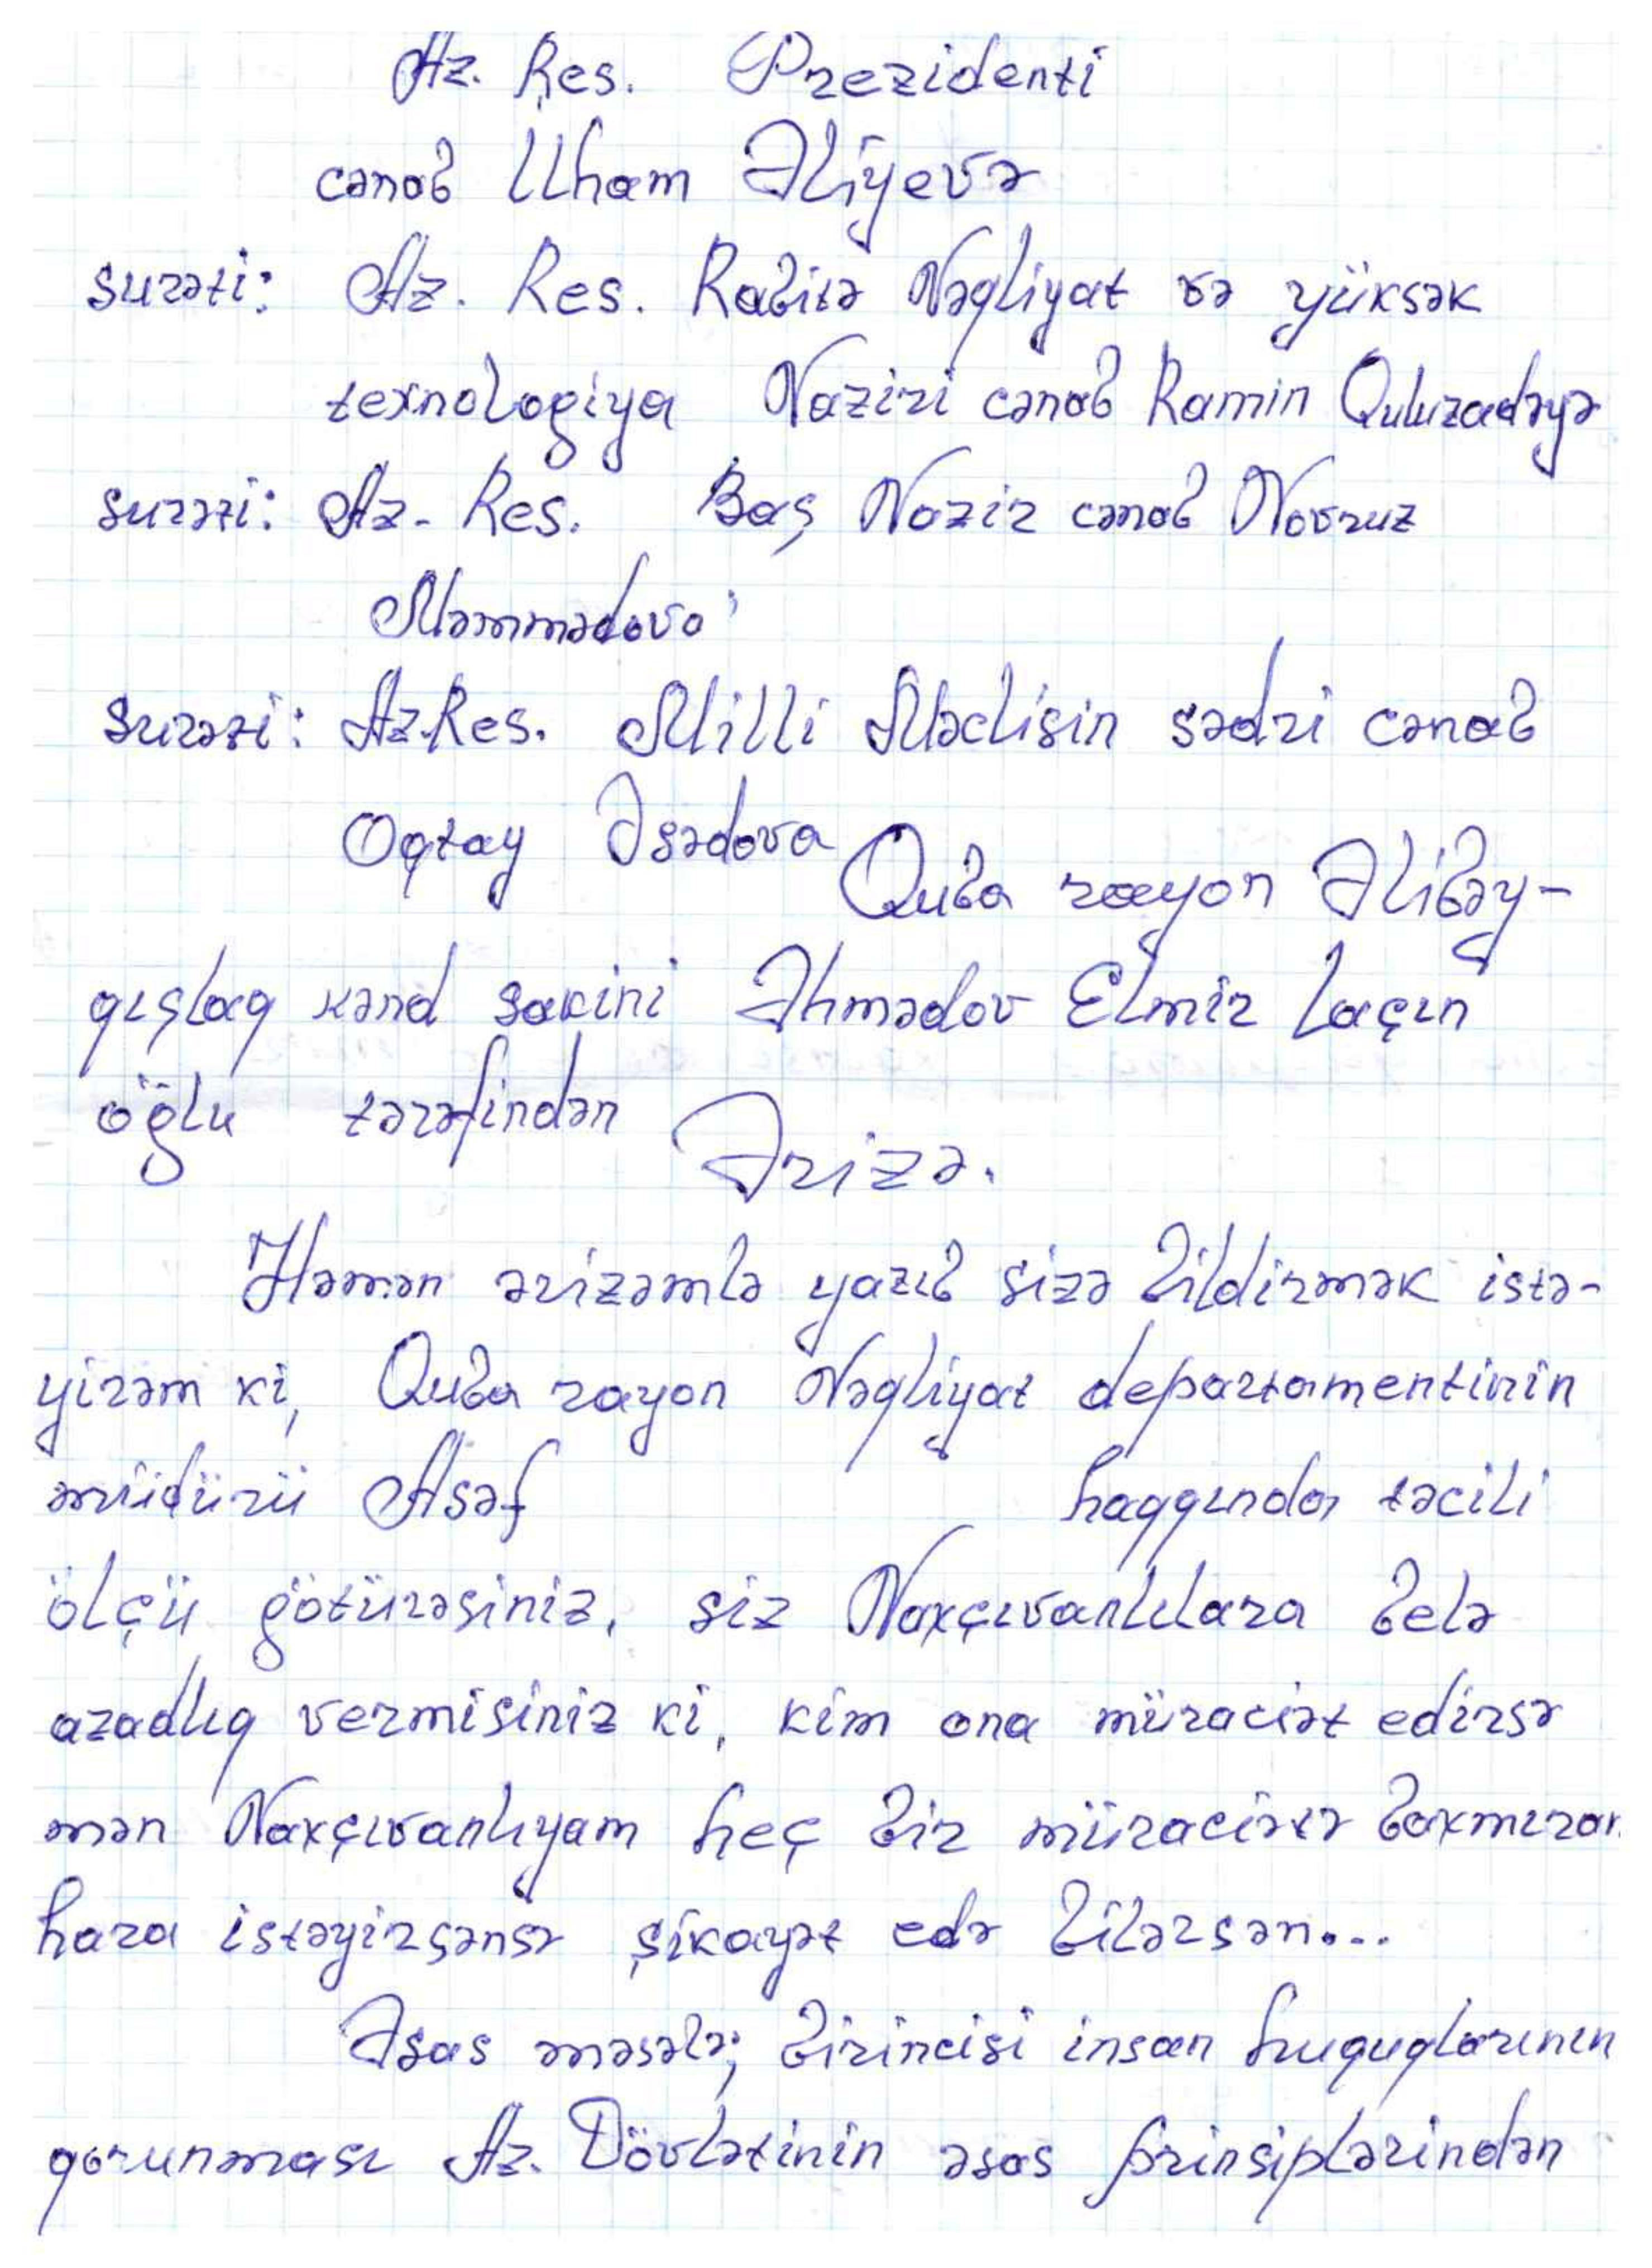 Az. Res. Prezidenti
cənab İlham Əliyevə
surəti: Az. Res. Rabitə Nəqliyat və yüksək
texnologiya Naziri cənab Ramin Quluzadəyə
surəti: Az. Res. Baş Nazir cənab Novruz
Məmmədova
surəti: Az.Res. Milli Məclisin sədri cənab
Oqtay Əsədova
Quba rayon Əlibəy-
qışlaq kənd sakini Əhmədov Elmir Laçın
öğlu tərəfindən
Ərizə.
Həmən ərizəmlə yazıb sizə bildirmək istə-
yirəm ki, Quba rayon Nəqliyat departamentinin
müdürü Asəf haqqında təcili
ölçü götürəsiniz, siz Naxçıvanlılara belə
azadlıq vermisiniz ki, kim ona müraciət edirsə
mən Naxçıvanlıyam heç bir müraciətə baxmıram
hara istəyirsənsə şikayət edə bilərsən...
Əsas məsələ; birincisi insan huquqlarının
qorunması Az. Dövlətinin əsas prinsiplərindən